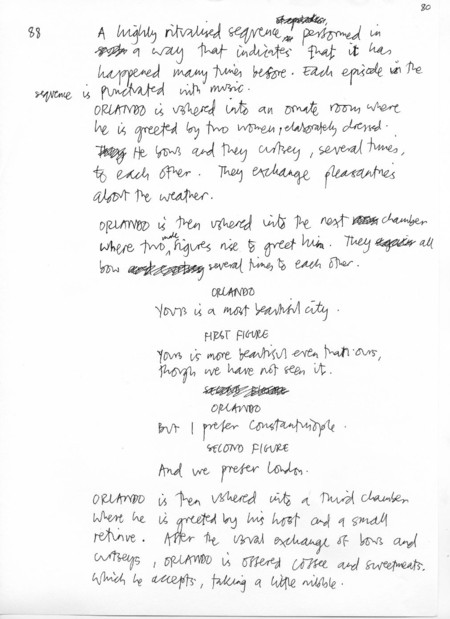 80
88
A highly ritualised sequence, performed in
a way that indicates that it has
happened many times before. Each episode in the
sequence is punctuated with music.
ORLANDO is ushered into an ornate room where
he is greeted by two women, elaborately dressed.
He bows and they curtsey, several times,
to each other. They exchange pleasantries
about the weather.
ORLANDO is then ushered into the next chamber
where two male figures rise to greet him. They all
bow several times to each other.
ORLANDO
Yours is a most beautiful city.
FIRST FIGURE
Yours is more beautiful even than ours,
though we have not seen it.
ORLANDO
But I prefer Constantinople.
SECOND FIGURE
And we prefer London.
ORLANDO is then ushered into a third chamber
where he is greeted by his host and a small
retinue. After the usual exchange of bows and
curtseys, ORLANDO is offered coffee and sweetmeats.
Which he accepts, taking a little nibble.